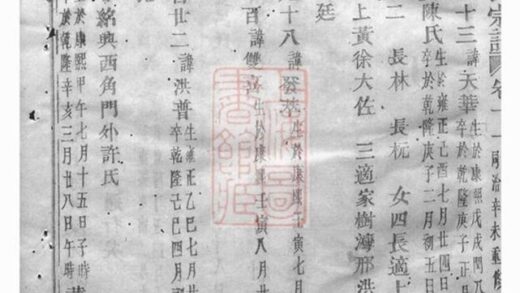 宗譜 卷 一 同治辛未重修
十三 諱天華 生於康熙戊戌閏八
卒於乾隆庚子正月
陳氏 生於雍正己酉七月廿四日
卒於乾隆庚子二月初五日
二 長林 長杬 女四長適上
上黃徐大佐 三適家樹灣邢洪
廷
十八 諱發 生於康熙 寅七月
百 諱雙喜 生於康熙壬寅八月廿
百廿二 諱洪普 生雍正乙巳七月廿
卒乾隆己巳四月
紹興西角門外許氏
生於康熙甲午七月十五日子時
卒於乾隆辛亥三月廿八日午時